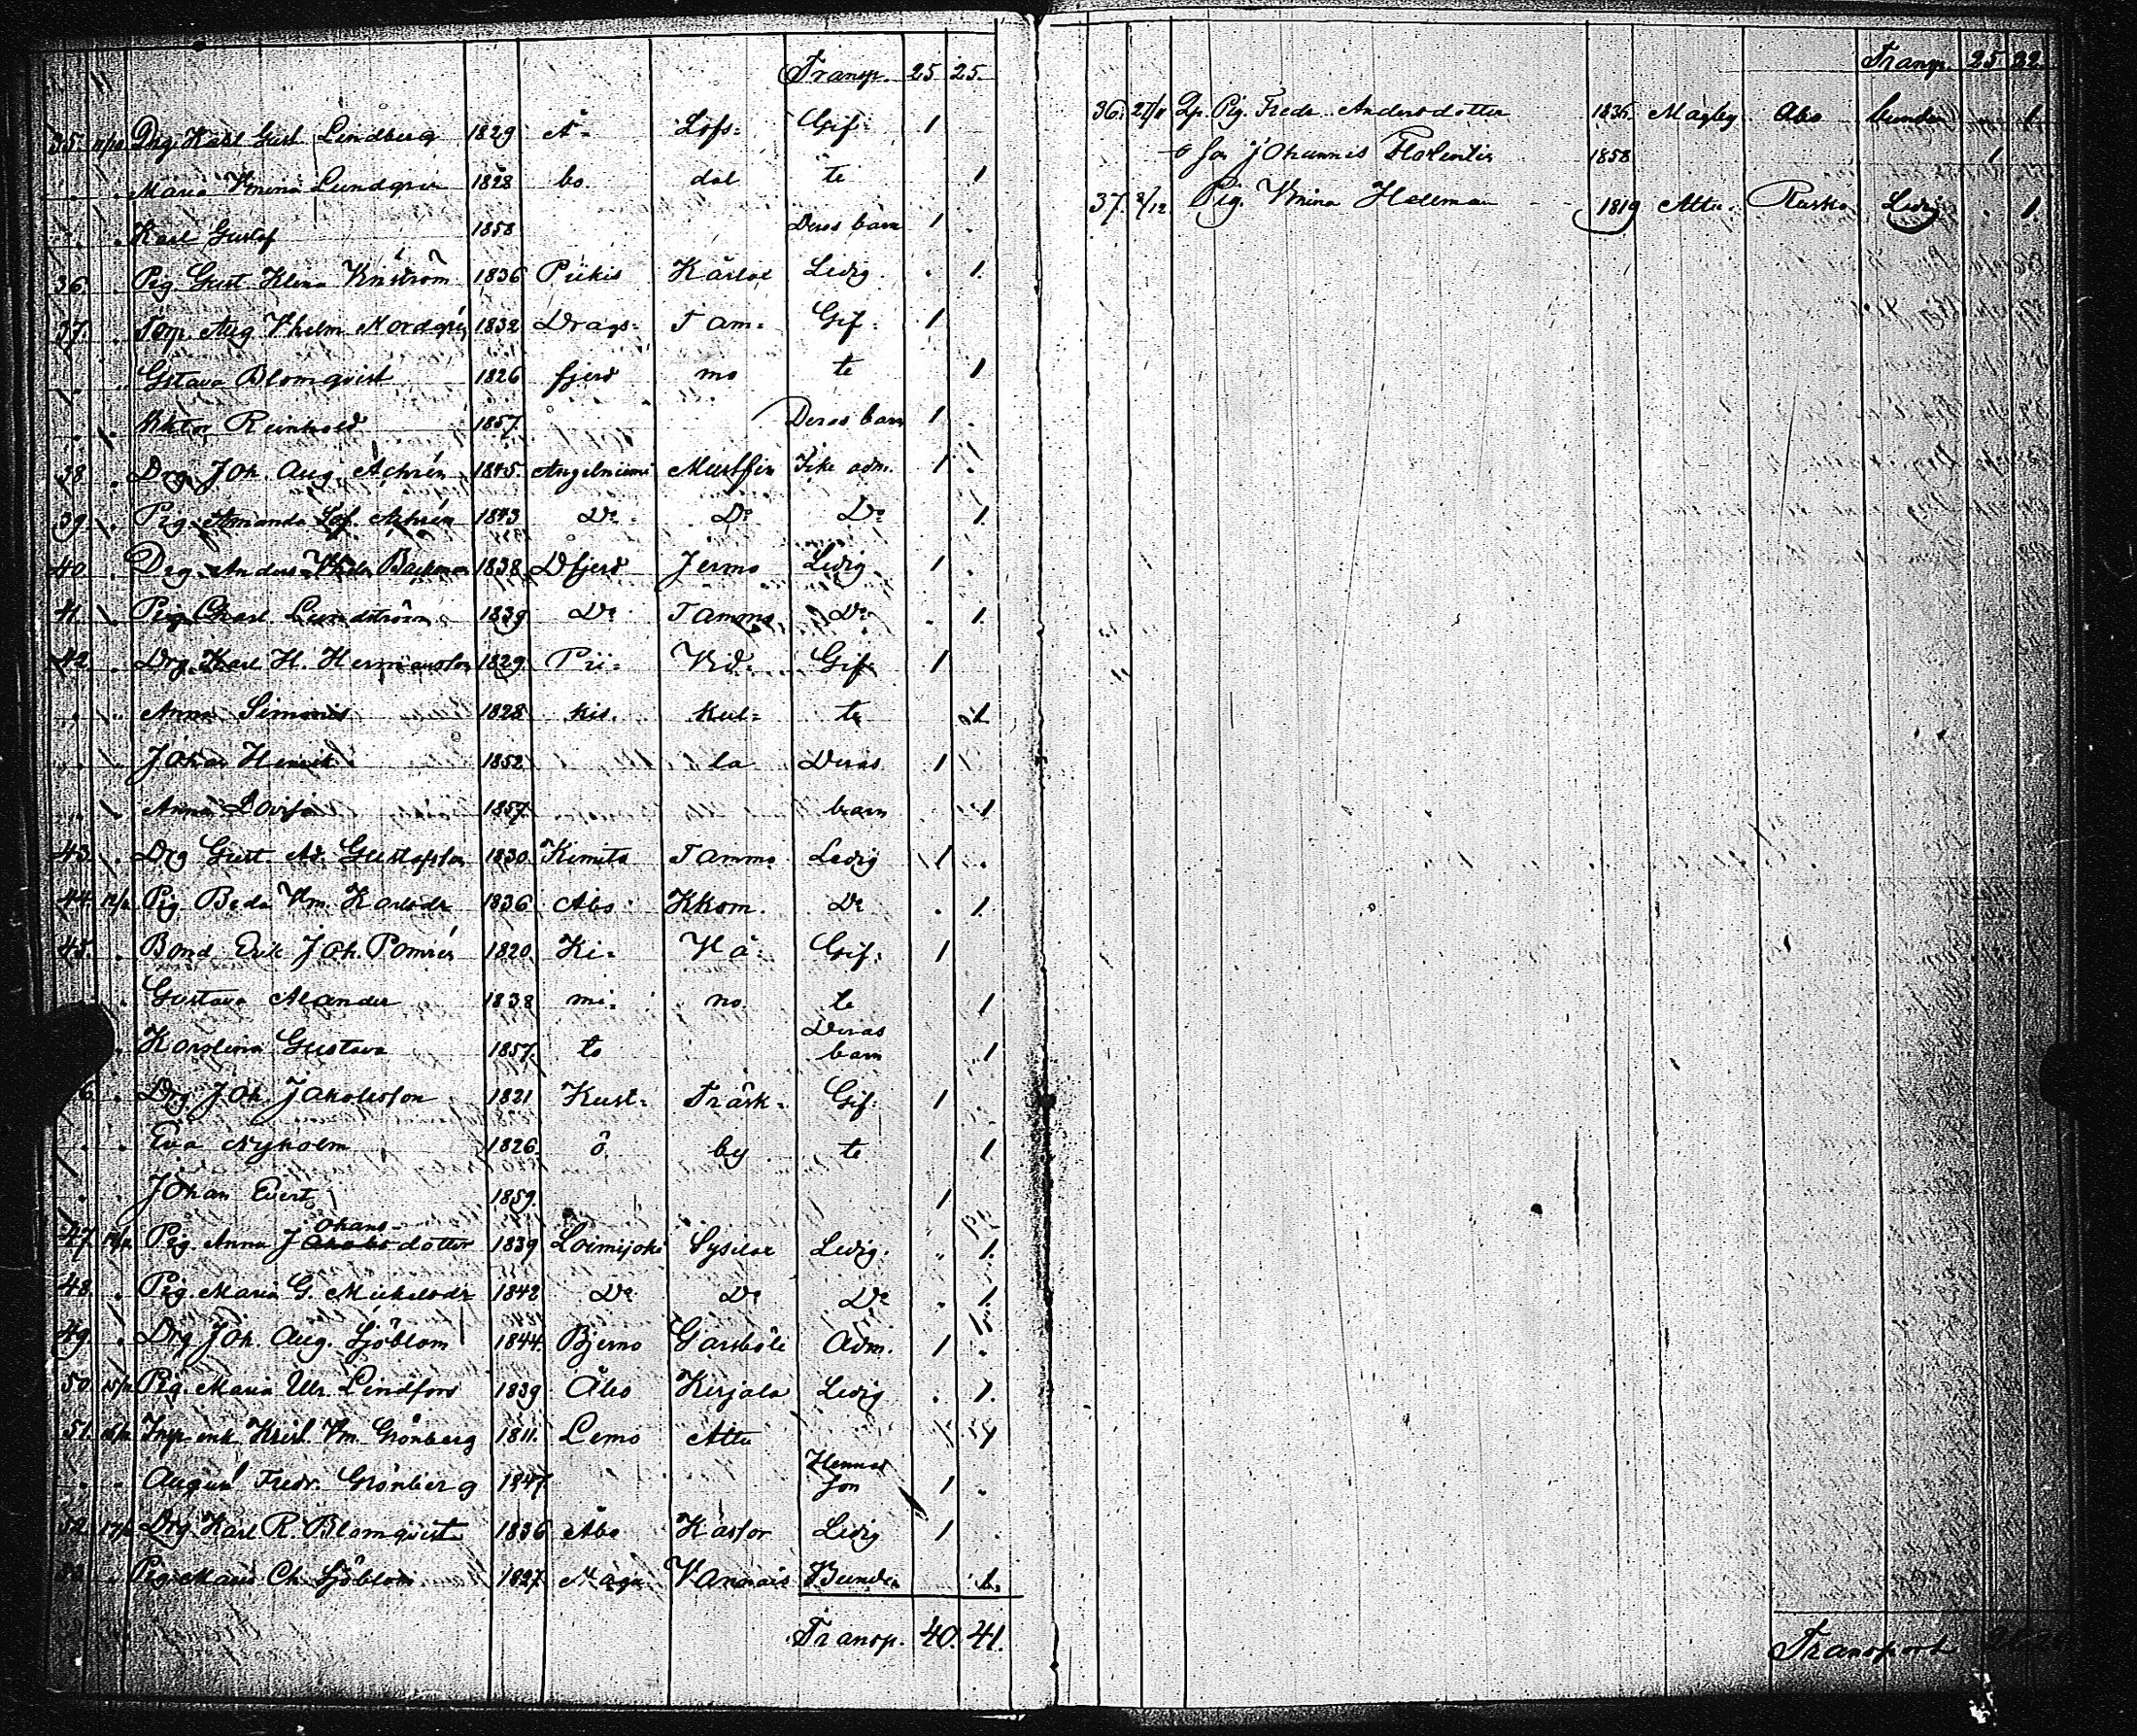 Transp. 25 25.
35. 11/12 Drg Karl Gust. Lindberg 1829 Å= Löfs= Gif= 1
Maria Vmina Lundgren 1828 bo. dal te 1
Karl Gustaf 1858 Deras barn 1
36. Pig. Gust. Helena Enström 1836 Piikis Kärlax Ledig. 1.
37. Torp. Aug Vhelm Nordgrén 1832 Drags= Tam= Gif= 1
Gstava Blomqvist 1826 fjerd mo te 1
Viktor Reinhold 1857. Deras barn 1
38. Drg. Joh. Aug. Åchrén 1845. Angelniemi Mustfin Icke adm. 1
39. Pig. Amanda Sof. Achrén 1843 Do Do Do 1.
40. Drg. Anders Backman 1838 Dfjerd Jermo Ledig 1
41. Pig. Charl. Lundström 1839 Do Tammo Do 1.
42. Drg. Karl H. Hermansson 1829 Pii= Vid= Gif= 1
Anna Simons 1828 kis. kul= te 1
Johan Henrik 1852 la Deras 1
Anna Lovisa 1857 barn 1
43. Drg Gust. Ad. Gustafsson 1830. Kimito Tammo Ledig 1
44. Pig. Beda Vm. Karlsdr 1836 Åbo Kkom. Do 1.
45. Bond. Erik Joh. Pomrén 1820 Ki= Vå= Gif= 1
Gustava Alander 1838 mi= no. te 1
Karolina Gustava 1857. to Deras barn 1
6. Drg. Joh. Jakobsson 1821 Kust= Träsk= Gif= 1
Eva Nyholm 1826. ö by te 1
Johan Evert 1859. 1
47. Pig. Anna Johansdotter 1839 Loimijoki Sysilax Ledig. 1.
48. Pig. Maria G. Mickelsdr 1842 Do Do Do 1.
49. Drg Joh. Aug. Sjöblom 1844. Bjerno Garsböle Adm. 1
50. 15/12 Pig. Maria Ulr. Lindfors 1839 Åbo Kirjala Ledig 1.
51. Krist. Vm. Grönberg 1811. Lemo Attu 1
August Fredr. Grönberg 1847 Hennes son 1
52. Drg. Karl R. Blomqvist 1836 Åbo Kasfor Ledig 1
53. Pig. Maria Ch. Sjöblom 1827. Nagu Vannais Bunden 1.
Transp. 40. 41.
Transp. 25 22.
36. Pig. Fredr. Andersdotter 1836. Magby Åbo bunden 1
o son Johannes Florentin 1858 1
37. 3/12 Pig. Vmina Hellman 1819 Attu Rusko Ledig 1
Transport